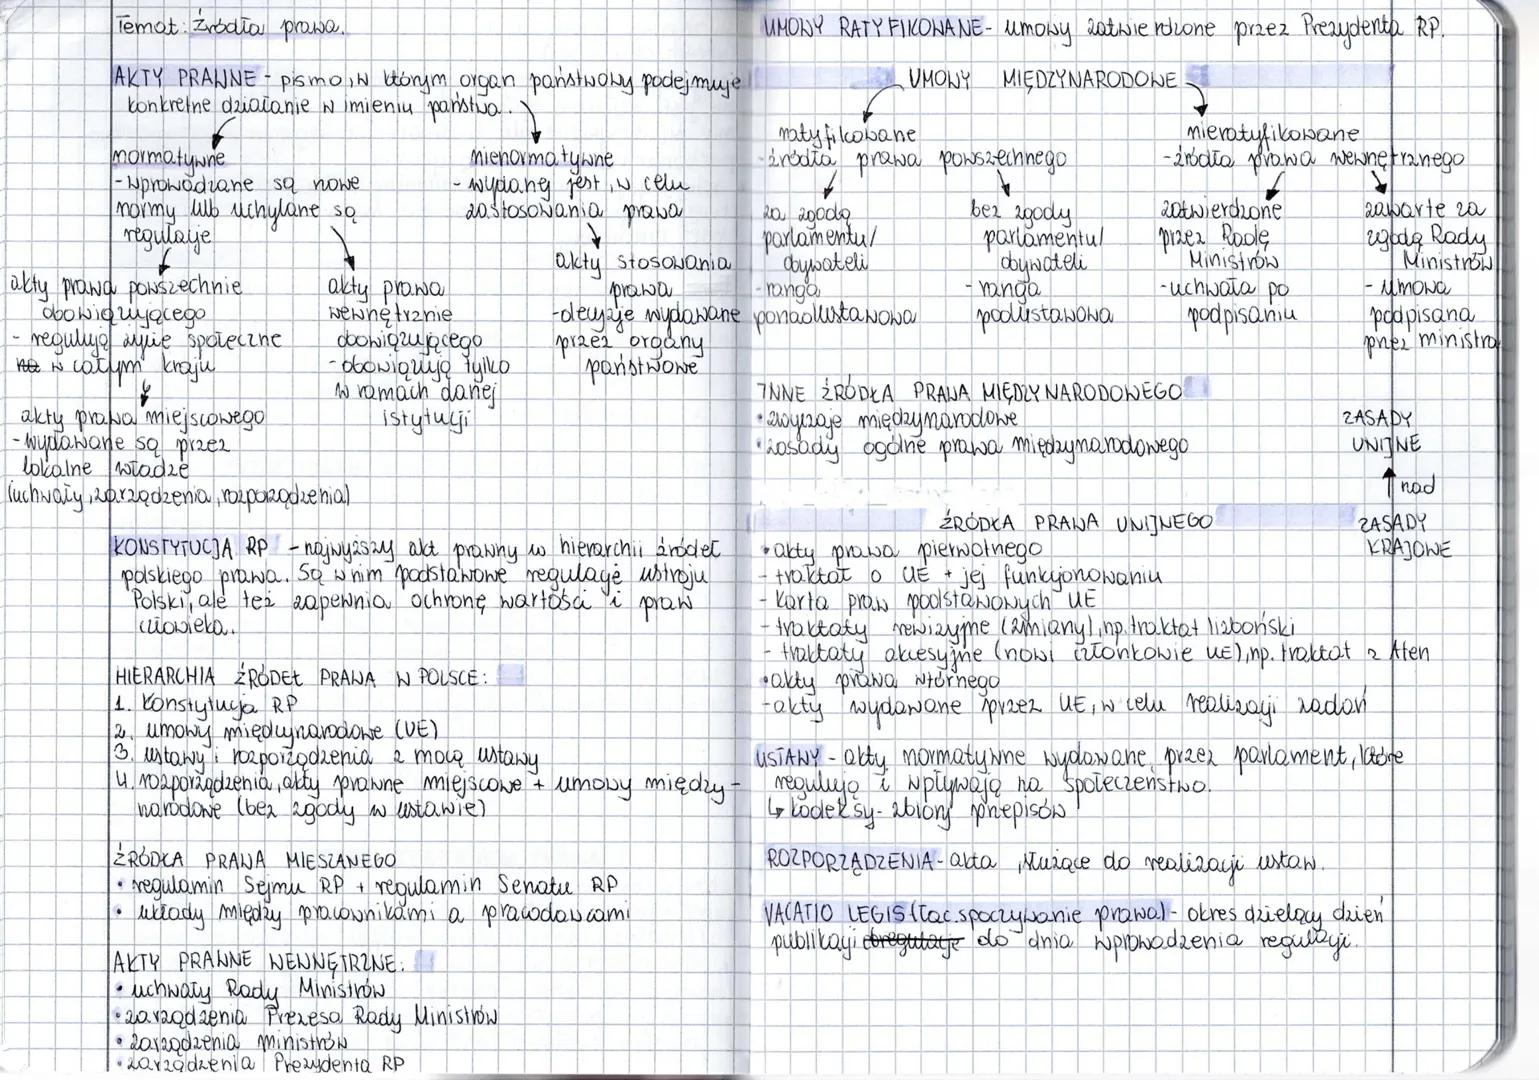 Temat: Źródła prawa.
AKTY PRAWNE - pismo, w którym organ państwowy podejmuje
konkretne działanie w imieniu państwa.
normatywne
- wprowadzane są nowe
normy lub uchylane są
regulacje
nienormatywne
- wydaną jest, w celu
zastosowania prawa
akty prawa powszechnie
obowiązującego
- regulują życie społeczne
na w całym kraju
akty prawa
wewnętrznie
obowiązującego
- obowiązują tylko
w ramach danej
istytucji
akty stosowania
prawa
- decyzje wydawane
przez organy
państwowe
akty prawa miejscowego
- wydawane są przez
lokalne władze
(uchwały, zarządzenia, rozporządzenia)
KONSTYTUCJA RP - najwyższy akt prawny w hierarchii źródeł
polskiego prawa. Są w nim podstawowe regulacje ustroju
Polski, ale też zapewnia ochronę wartości i praw
człowieka.
HIERARCHIA ŹRÓDEŁ PRAWA W POLSCE:
1. Konstytucja RP
2. umowy międzynarodowe (UE)
3. ustawy i rozporządzenia z mocą ustawy
4. rozporządzenia, akty prawne miejscowe + umowy między-
narodowe (bez zgody w ustawie)
ŹRÓDŁA PRAWA MIESZANEGO
• regulamin Sejmu RP + regulamin Senatu RP
• układy między pracownikami a pracodawcami
AKTY PRAWNE WEWNĘTRZNE:
• uchwały Rady Ministrów
• zarządzenia Prezesa Rady Ministrów
• zarządzenia ministrów
• zarządzenia Prezydenta RP
UMOWY RATYFIKOWANE - umowy zatwierdzone przez Prezydenta RP.
UMOWY MIĘDZYNARODOWE
ratyfikowane
- źródła prawa powszechnego
nieratyfikowane
- źródła prawa wewnętrznego
za zgodą
parlamentu/
obywateli
- ranga
ponadustawowa
bez zgody
parlamentu/
obywateli
- ranga
podustawowa
zatwierdzone
przez Radę
Ministrów
- uchwała po
podpisaniu
zawarte za
zgodą Rady
Ministrów
- umowa
podpisana
przez ministra
INNE ŹRÓDŁA PRAWA MIĘDZYNARODOWEGO
• zwyczaje międzynarodowe
• zasady ogólne prawa międzynarodowego
ZASADY
UNIJNE
nad
ZASADY
KRAJOWE
ŹRÓDŁA PRAWA UNIJNEGO
• akty prawa pierwotnego
- traktat o UE + jej funkcjonowaniu
- Karta praw podstawowych UE
- traktaty rewizyjne (zmiany), np. traktat lizboński
- traktaty akcesyjne (nowi członkowie UE), np. traktat z Aten
• akty prawa wtórnego
- akty wydawane przez UE, w celu realizacji zadań
USTAWY - akty normatywne wydawane przez parlament, które
regulują i wpływają na społeczeństwo.
↳ kodeksy - zbiory przepisów
ROZPORZĄDZENIA - akta, służące do realizacji ustaw.
VACATIO LEGIS (łac. spoczywanie prawa) - okres dzielący dzień
publikacji do dnia wprowadzenia regulacji.